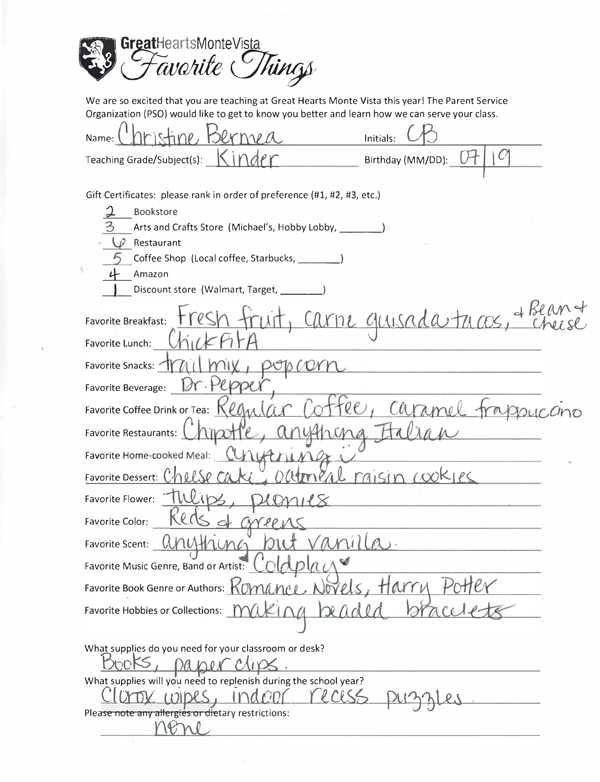 GreatHeartsMonteVista
Favorite Things
We are so excited that you are teaching at Great Hearts Monte Vista this year! The Parent Service
Organization (PSO) would like to get to know you better and learn how we can serve your class.
Name: Christine Bermea Initials: CB
Teaching Grade/Subject(s): Kinder Birthday (MM/DD): 07/19
Gift Certificates: please rank in order of preference (#1, #2, #3, etc.)
2 Bookstore
3 Arts and Crafts Store (Michael's, Hobby Lobby, ________)
6 Restaurant
5 Coffee Shop (Local coffee, Starbucks, ________)
4 Amazon
1 Discount store (Walmart, Target, ________)
Favorite Breakfast: Fresh fruit, carne guisada tacos, & Bean & cheese
Favorite Lunch: Chick Fil A
Favorite Snacks: trail mix, popcorn
Favorite Beverage: Dr. Pepper,
Favorite Coffee Drink or Tea: Regular Coffee, caramel frappuccino
Favorite Restaurants: Chipotle, anything Italian
Favorite Home-cooked Meal: anything
Favorite Dessert: Cheese cake, oatmeal raisin cookies
Favorite Flower: tulips, peonies
Favorite Color: Reds & greens
Favorite Scent: anything but vanilla.
Favorite Music Genre, Band or Artist: Coldplay
Favorite Book Genre or Authors: Romance Novels, Harry Potter
Favorite Hobbies or Collections: making beaded bracelets
What supplies do you need for your classroom or desk?
Books, paper clips.
What supplies will you need to replenish during the school year?
Clorox wipes, indoor recess puzzles.
Please note any allergies or dietary restrictions:
none